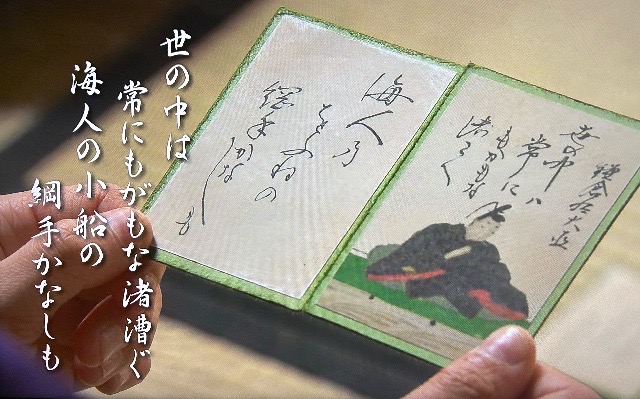 世の中は
常にもがもな渚漕ぐ
海人の小船の
綱手かなしも
鎌倉右大臣
世の中ハ
常に
もかもな
渚こく
海人乃
をふねの
綱手かなし
も